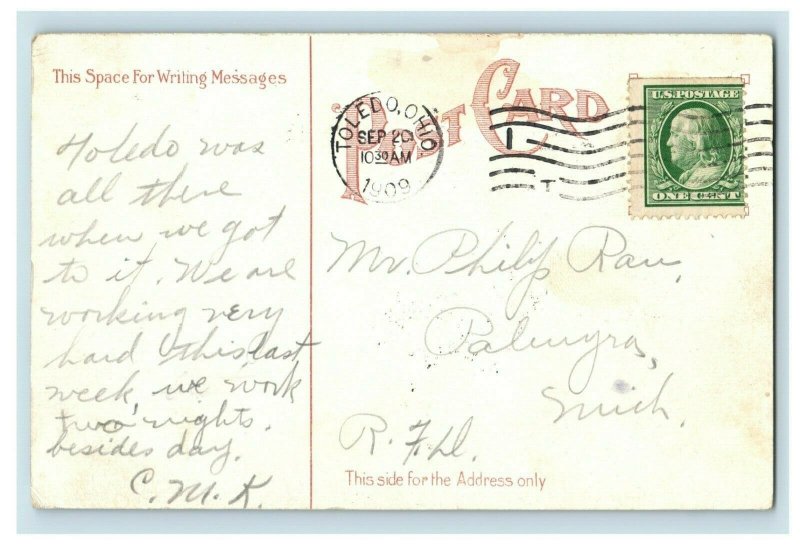 This Space For Writing Messages
Toledo was
all there
when we got
to it. We are
working very
hard this last
week, we work
two nights.
besides day.
C. M. K.
POST CARD
TOLEDO, OHIO
SEP 20
10 30 AM
1909
U.S. POSTAGE
ONE CENT
Mr. Philip Rau,
Palmyra,
Mich.
R. F. D.
This side for the Address only